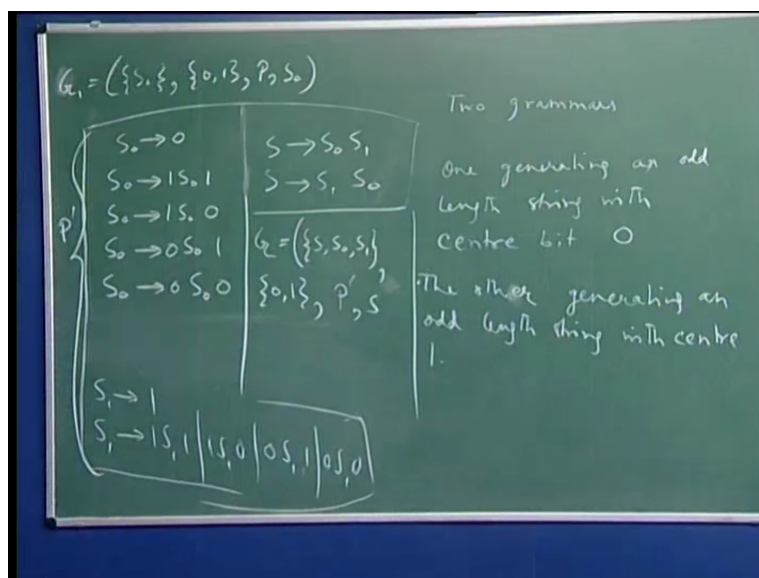 G₁ = ({S₀}, {0,1}, P, S₀)
P'
S₀ → 0
S₀ → 1S₀1
S₀ → 1S₀0
S₀ → 0S₀1
S₀ → 0S₀0
S₁ → 1
S₁ → 1S₁1 | 1S₁0 | 0S₁1 | 0S₁0
S → S₀S₁
S → S₁ S₀
G = ({S, S₀, S₁},
{0,1}, P', S
Two grammars
One generating an odd
length string with
centre bit 0
The other generating an
odd length string with centre
1.